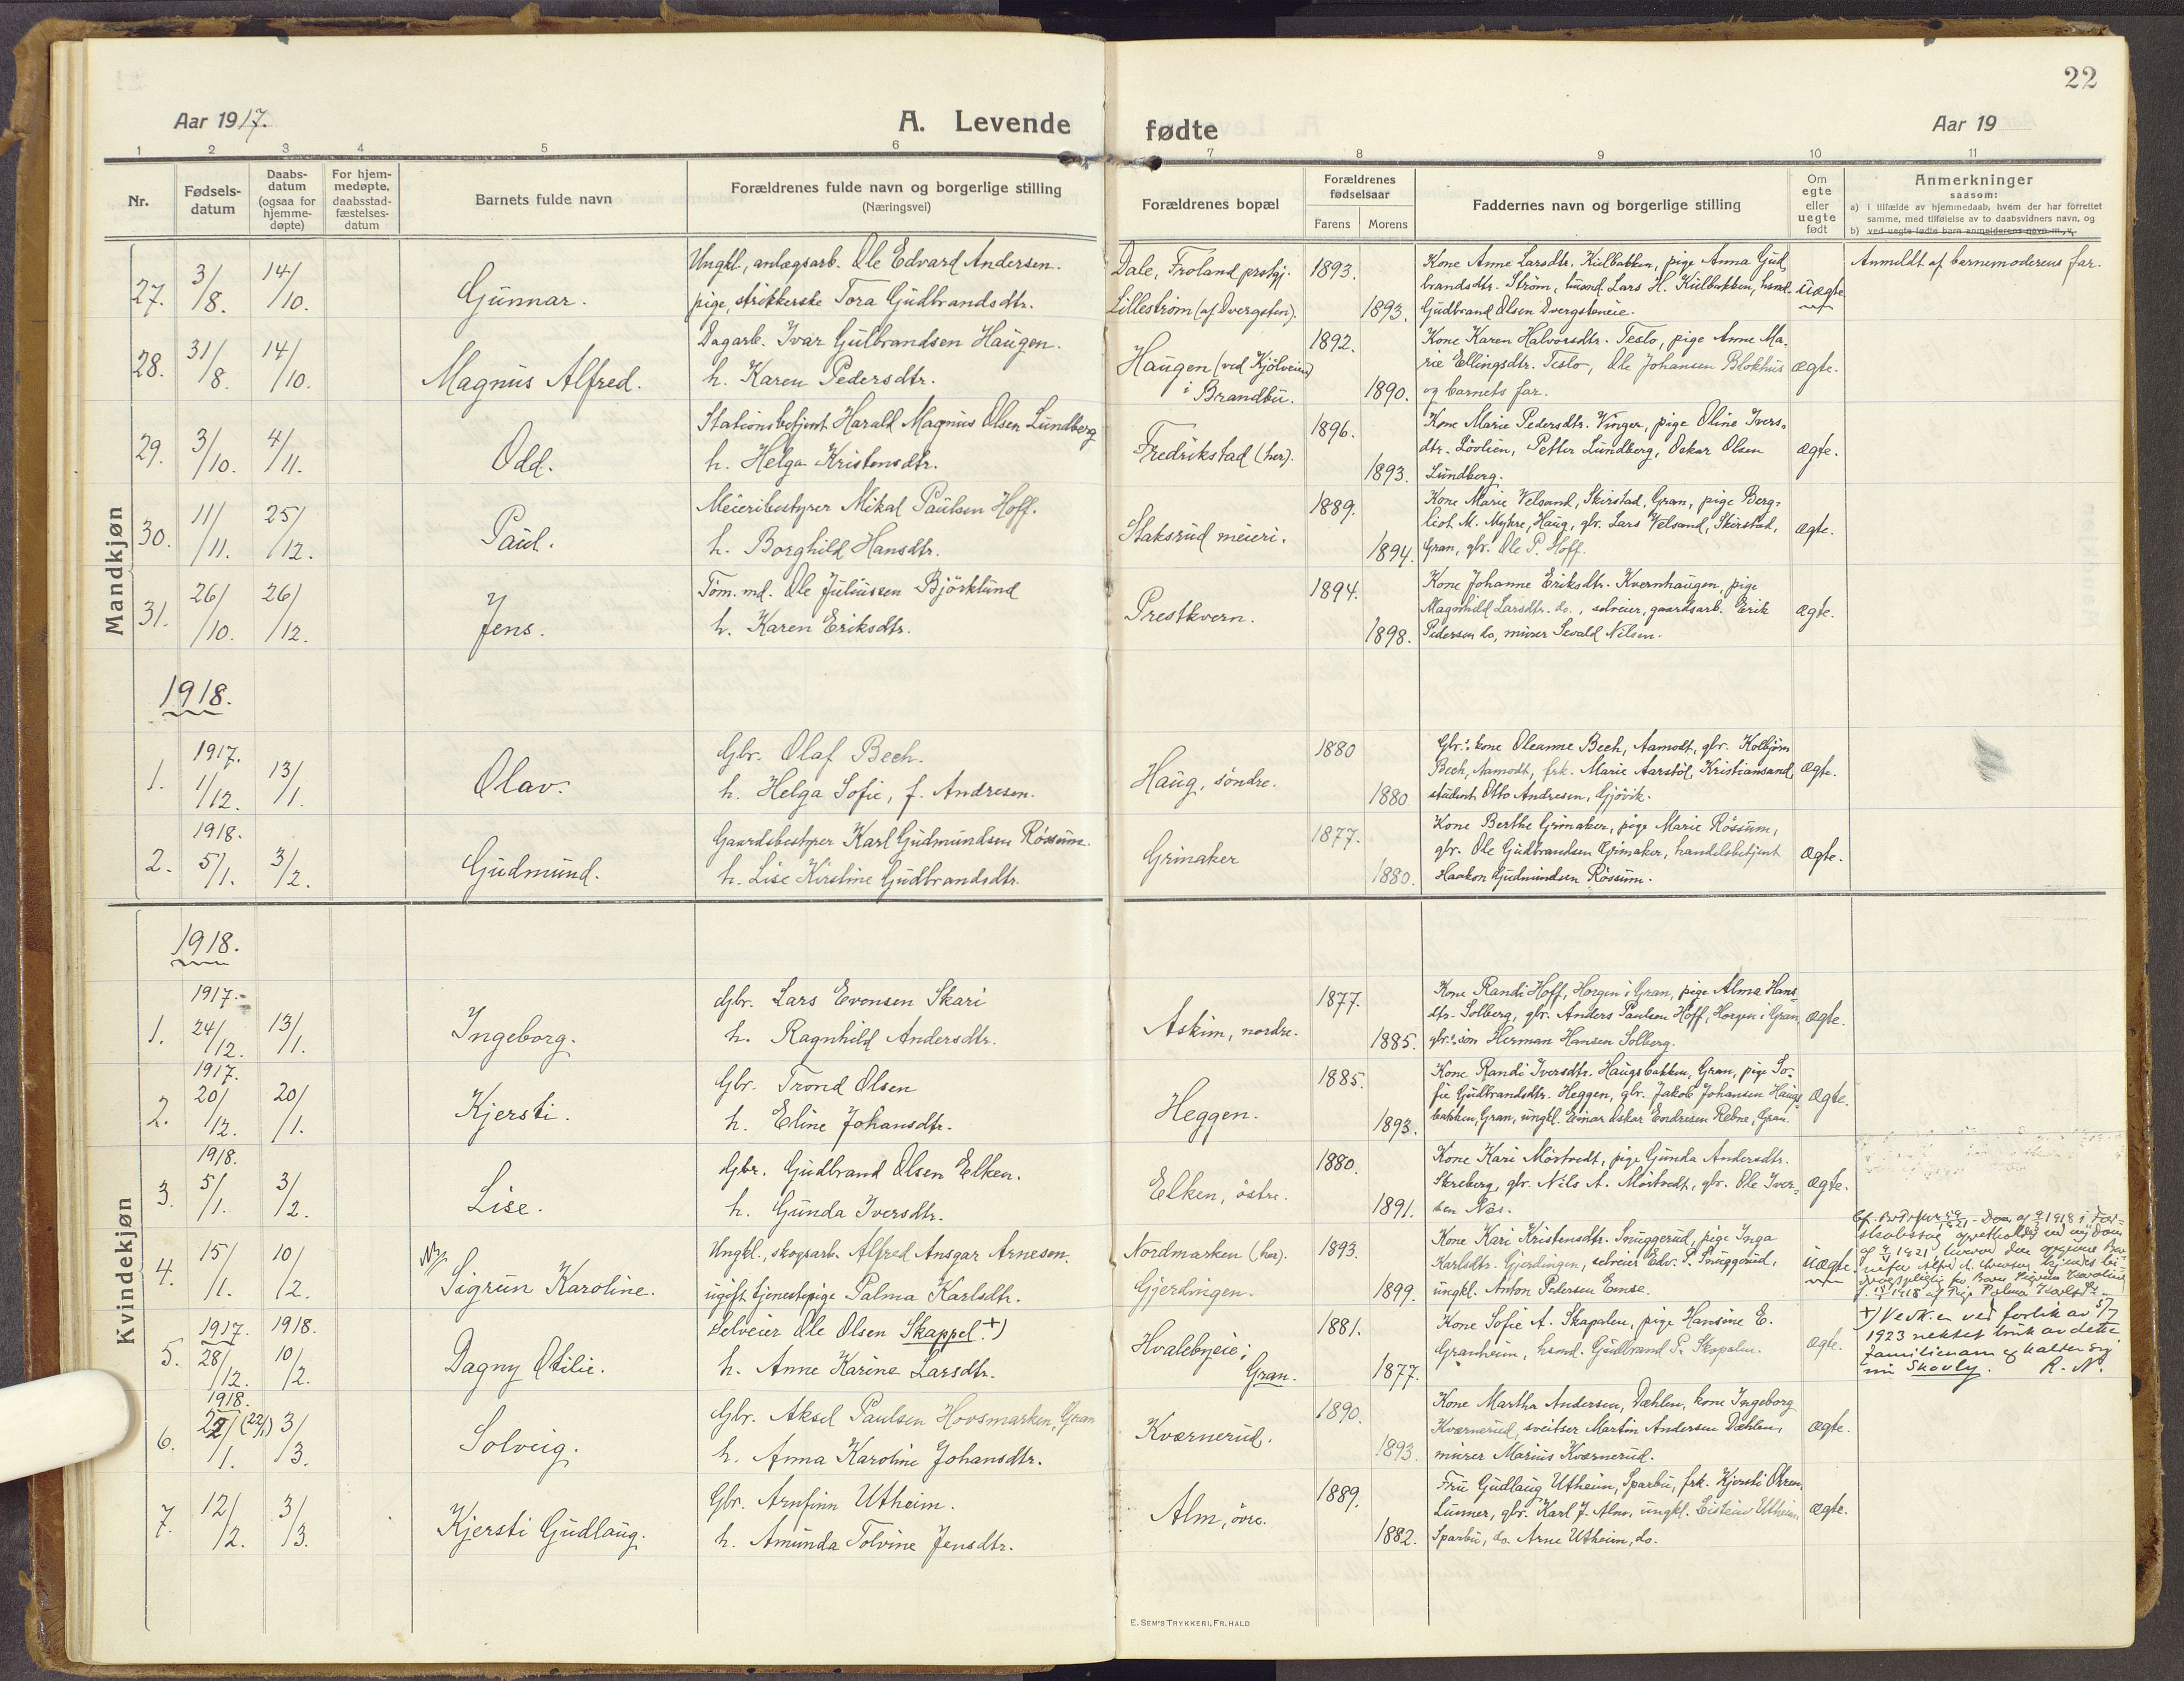 22
Aar 1917.
A. Levende
fødte
Aar 19
1 2 3 4 5 6 7 8 9 10 11
Nr.
Fødsels-
datum
Daabs-
datum
(ogsaa for
hjemme-
døpte)
For hjem-
medøpte,
daabsstad-
fæstelses-
datum
Barnets fulde navn
Forældrenes fulde navn og borgerlige stilling
(Næringsvei)
Forældrenes bopæl
Forældrenes
fødselsaar
Farens Morens
Faddernes navn og borgerlige stilling
Om
egte
eller
uegte
født
Anmerkninger
saasom:
a) i tilfælde av hjemmedaab, hvem der har forrettet
samme, med tilføielse av to daabsvidners navn, og
b) ved uegte fødte barn anmelderens navn m. v.
Mandkjøn
27. 3/8. 14/10. Gunnar.
Ungkl, anlægsarb. Ole Edvard Andersen.
pige, strikkerske Tora Gudbrandsdtr.
Dale, Froland prstgj.
Lillestrøm (af Dvergsten).
1893.
1893.
Kone Anne Larsdtr. Kulbakken, pige Anna Gud
brandsdtr. Strøm, husmd. Lars H. Kulbakken, husmd.
Gudbrand Olsen Dvergsteneie.
uægte
Anmeldt af barnemoderens far.
28. 31/8. 14/10. Magnus Alfred.
Dagarb. Ivar Gulbrandsen Haugen.
h. Karen Pedersdtr.
Haugen (ved Kjølveien)
i Brandbu.
1892.
1890.
Kone Karen Halvorsdtr. Teslo, pige Anne Ma-
rie Ellingsdtr. Teslo, Ole Johansen Blokhus
og barnets far.
ægte.
29. 3/10. 4/11. Odd.
Stationsbetjent Harald Magnus Olsen Lundberg
h. Helga Kristensdtr.
Fredrikstad (her).
1896.
1893.
Kone Marie Pedersdtr. Vinger, pige Oline Ivers-
dtr. Løvlien, Petter Lundberg, Oskar Olsen
Lundberg.
ægte.
30. 11/11. 25/12. Paul.
Meieribestyrer Mikal Paulsen Hoff.
h. Borghild Hansdtr.
Staksrud meieri.
1889.
1894.
Kone Marie Velsand, Skirstad, Gran, pige Berg-
liot M. Myhre, Haug, gbr. Lars Velsand, Skirstad,
Gran, gbr. Ole P. Hoff.
ægte.
31. 26/10. 26/12. Jens.
Tøm. md. Ole Juliussen Bjørklund
h. Karen Eriksdtr.
Prestkvern.
1894.
1898.
Kone Johanne Eriksdtr. Kvernhaugen, pige
Magnhild Larsdtr. do., selveier, gaardsarb. Erik
Pedersen do, murer Sevald Nilsen.
ægte.
1918.
1. 1917. 1/12. 13/1. Olav.
Gbr. Olaf Bech.
h. Helga Sofie, f. Andresen.
Haug, søndre.
1880
1880
Gbr.'s kone Oleanne Bech, Aamodt, gbr. Kolbjørn
Bech, Aamodt, frk. Marie Aarstøl, Kristiansand,
student Otto Andresen, Gjøvik.
ægte.
2. 1918. 5/1. 3/2. Gudmund.
Gaardsbestyrer Karl Gudmundsen Røssum.
h. Lise Kirstine Gudbrandsdtr.
Grinaker
1877.
1880.
Kone Berthe Grinaker, pige Marie Røssum,
gbr. Ole Gudbrandsen Grinaker, handelsbetjent
Haakon Gudmundsen Røssum.
ægte.
Kvindekjøn
1918.
1. 1917. 24/12. 13/1. Ingeborg.
Gbr. Lars Evensen Skari
h. Ragnhild Andersdtr.
Askim, nordre.
1877.
1885.
Kone Randi Hoff, Horgen i Gran, pige Alma Hans-
dtr. Solberg, gbr. Anders Paulsen Hoff, Horgen i Gran,
gbr.'s søn Herman Hansen Solberg.
ægte.
2. 1917. 20/12. 20/1. Kjersti.
Gbr. Trond Olsen
h. Eline Johansdtr.
Heggen.
1885.
1893.
Kone Randi Iversdtr. Haugsbakken, Gran, pige So-
fie Gudbrandsdtr. Heggen, gbr. Jakob Johansen Haugs-
bakken, Gran, ungkl. Einar Oskar Endresen Rebne, Gran.
ægte.
3. 1918. 5/1. 3/2. Lise.
Gbr. Gudbrand Olsen Elken.
h. Gunda Iversdtr.
Elken, østre.
1880.
1891.
Kone Kari Mørtvedt, pige Gunda Andersdtr.
Skreberg, gbr. Nils A. Mørtvedt, gbr. Ole Iver-
sen Næs.
ægte.
4. 15/1. 10/2. Sigrun Karoline.
Ungkl., skogsarb. Alfred Ansgar Arnesen.
ugift tjenestepige Palma Karlsdtr.
Nordmarken (her).
Gjerdingen.
1893.
1899.
Kone Kari Kristensdtr. Snuggerud, pige Inga
Karlsdtr. Gjerdingen, selveier Edv. P. Snuggerud,
ungkl. Anton Pedersen Emse.
uægte
5. 1917. 28/12. 1918. 10/2. Dagny Otilie.
Selveier Ole Olsen Skappel. +)
h. Anne Karine Larsdtr.
Hvalebyeie,
Gran.
1881.
1877.
Kone Sofie A. Skapalen, pige Hansine E.
Granheim, husmd. Gudbrand P. Skapalen.
ægte.
+) Vedk. er ved forlik av 5/7
1923 nektet bruk av dette
familienavn og kalter sig
nu Skovly. R. N.
6. 1918. 22/1. (22/1) 3/3. Solveig.
Gbr. Aksel Paulsen Hovsmarken, Gran
h. Anna Karoline Johansdtr.
Kværnerud.
1890.
1893.
Kone Martha Andersen, Dæhlen, kone Ingeborg
Kværnerud, sveitser Martin Andersen Dæhlen,
murer Marius Kværnerud.
ægte.
7. 12/2. 3/3. Kjersti Gudlaug.
Gbr. Arnfinn Utheim.
h. Amunda Tolvine Jensdtr.
Alm, øvre.
1889.
1882.
Fru Gudlaug Utheim, Sparbu, frk. Kjersti Orren,
Lunner, gbr. Karl J. Alm, ungkl. Eistein Utheim,
Sparbu, do. Arne Utheim, do.
ægte.
E. SEM'S TRYKKERI, FR. HALD